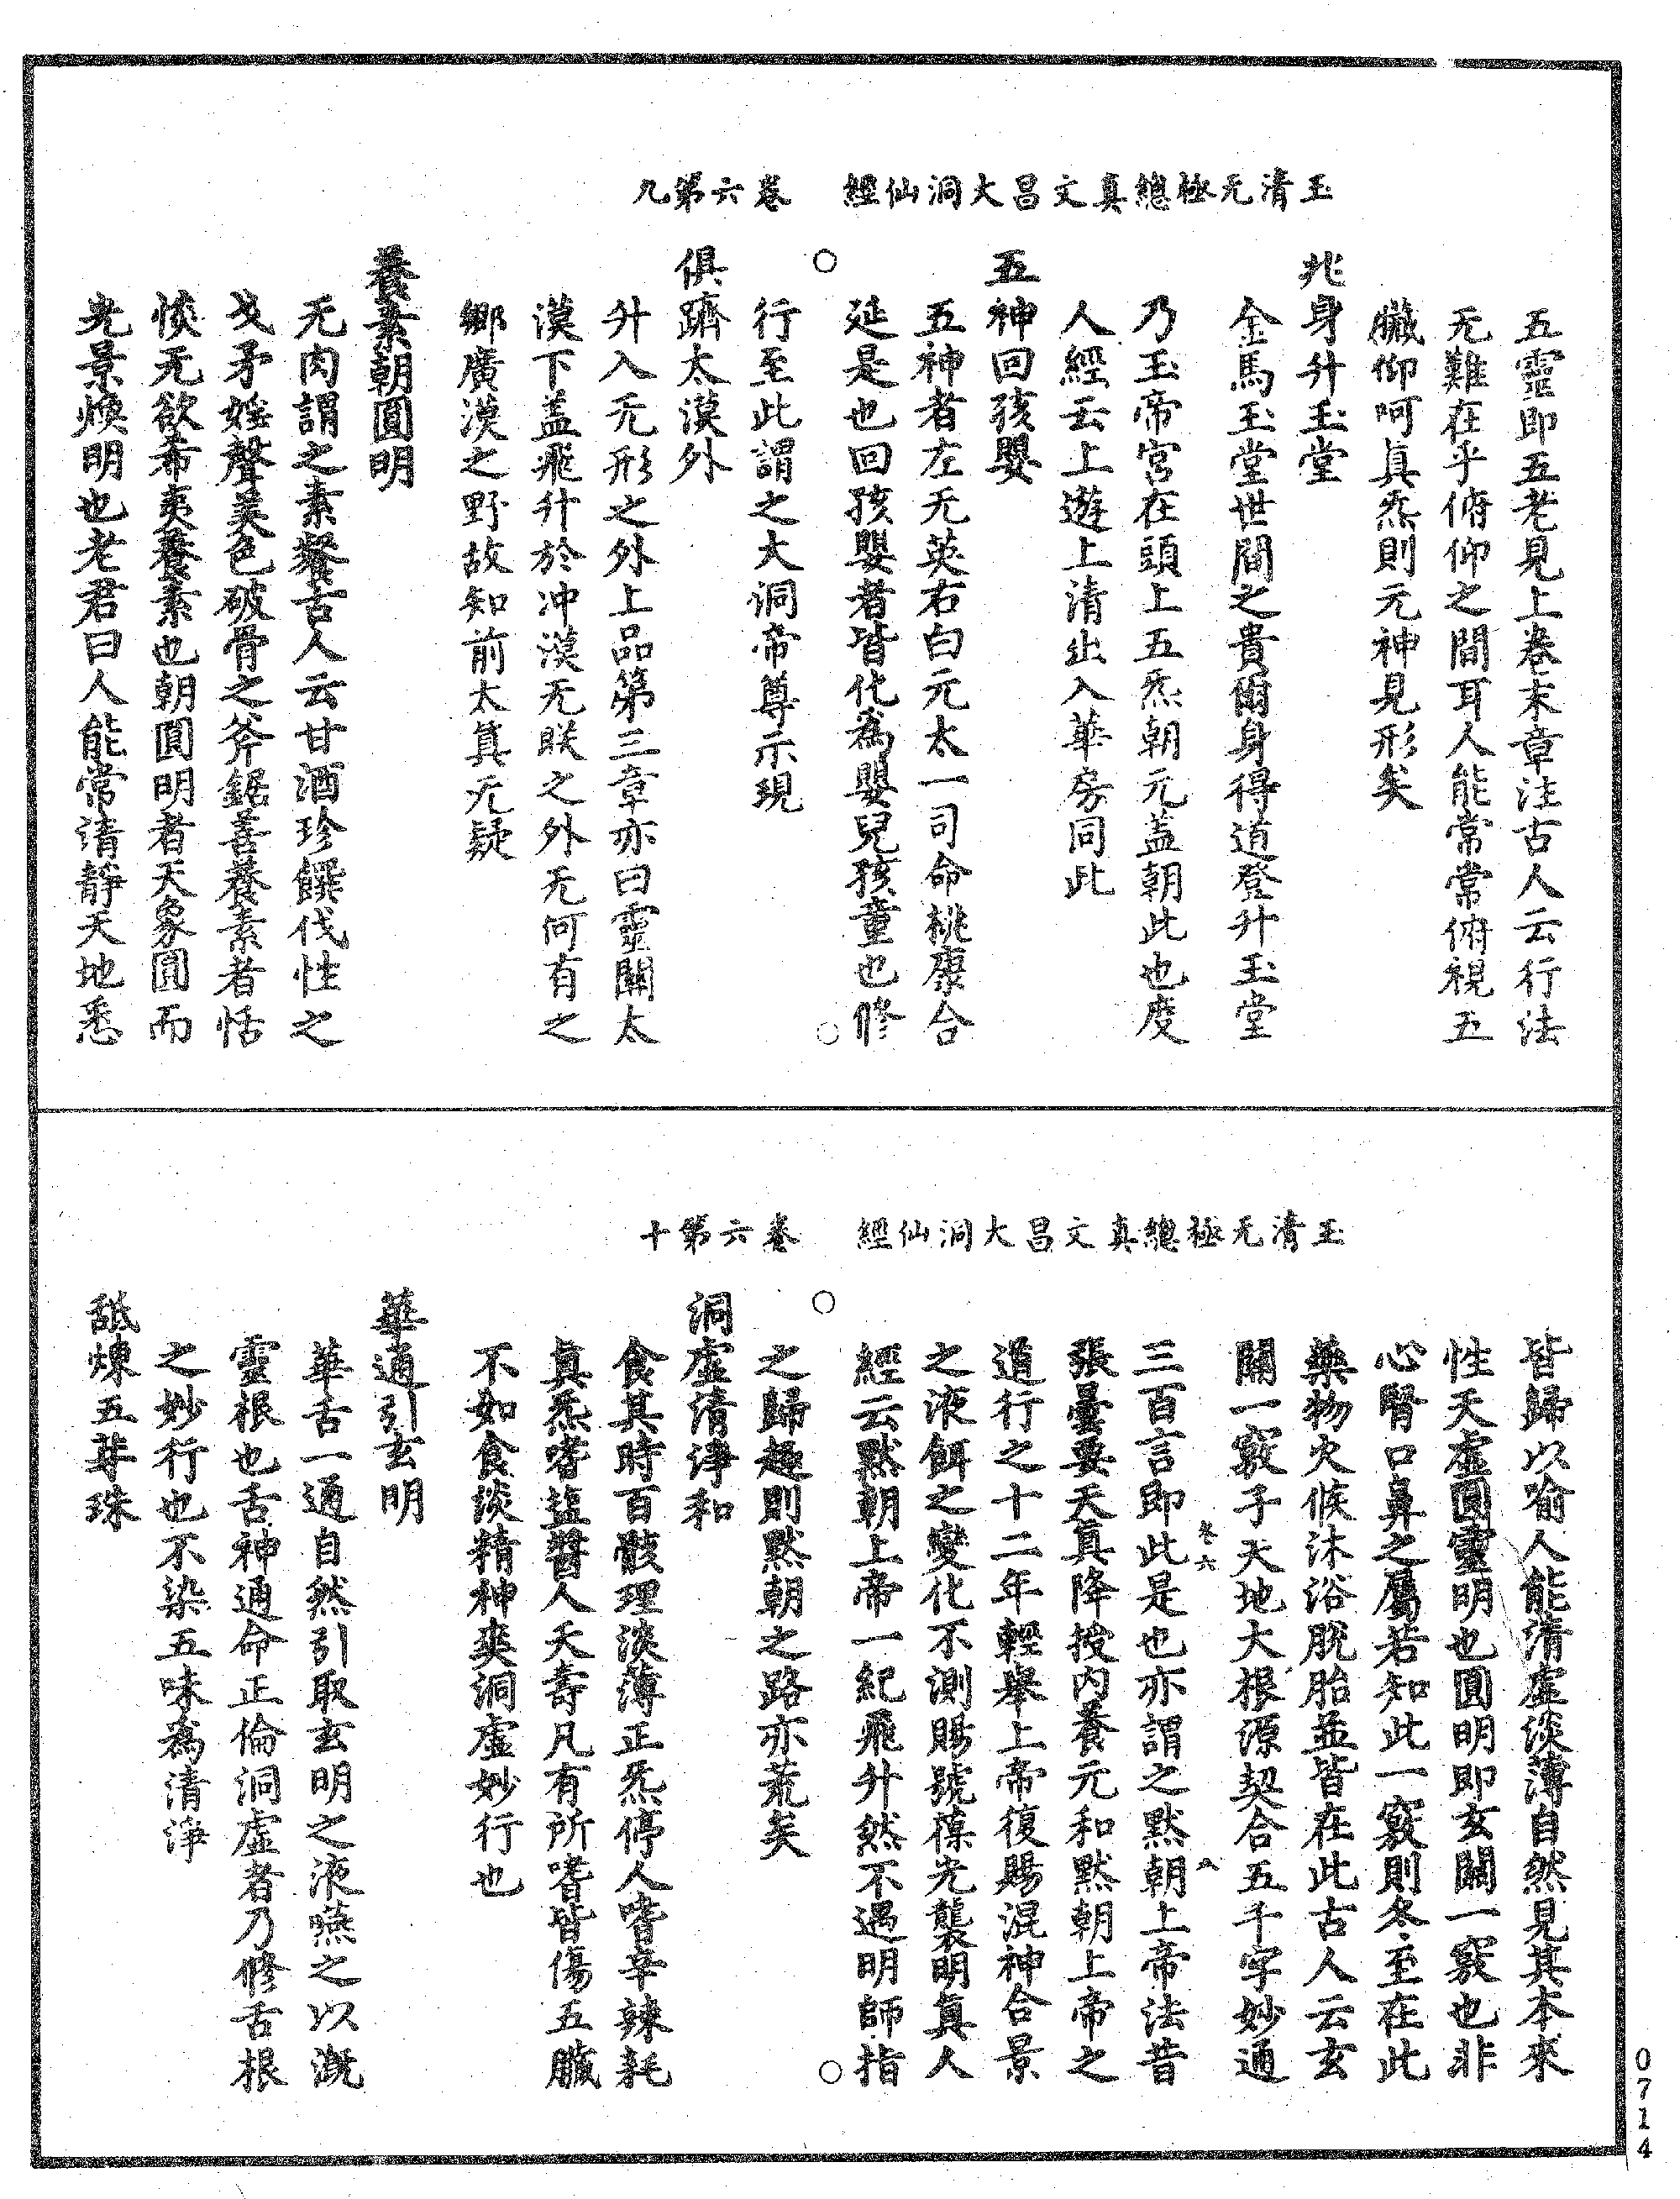 玉清无極總真文昌大洞仙經　卷六第九
五靈即五老見上卷末章注古人云行法
无難在乎俯仰之間耳人能常常俯視五
臟仰呵真炁則元神見形矣
兆身升玉堂
金馬玉堂世間之貴爾身得道登升玉堂
乃玉帝宮在頭上五炁朝元蓋朝此也度
人經云上遊上清出入華房同此
五神回孩嬰
五神者左无英右白元太一司命桃康合
延是也回孩嬰者皆化為嬰兒孩童也修
行至此謂之大洞帝尊示現
俱躋太漠外
升入无形之外上品第三章亦曰靈關太
漠下盖飛升於冲漠无眹之外无何有之
鄉廣漠之野故知前太真无疑
養素朝圓明
无肉謂之素餐古人云甘酒珍饌伐性之
戈矛婬聲美色破骨之斧鋸善養素者恬
惔无欲希夷養素也朝圓明者天象圓而
光景煥明也老君曰人能常清靜天地悉
玉清无極總真文昌大洞仙經　卷六第十
皆歸以喻人能清虛淡薄自然見其本來
性天虛圓靈明也圓明即玄關一竅也非
心腎口鼻之屬若知此一竅則冬至在此
藥物火候沐浴脫胎並皆在此古人云玄
關一竅子天地大根源契合五千字妙通
三百言即此是也亦謂之黙朝上帝法昔
張曇要天真降授内養元和黙朝上帝之
道行之十二年輕舉上帝復賜混神合景
之液餌之變化不測賜號葆光襲明真人
經云黙朝上帝一紀飛升然不遇明師指
之歸趣則黙朝之路亦荒矣
洞虛清淨和
食其時百骸理淡薄正炁停人嗜辛辣耗
真炁嗜盐醬人夭壽凡有所嗜皆傷五臟
不如食淡精神爽洞虛妙行也
華通引玄明
華舌一通自然引取玄明之液嚥之以溉
靈根也舌神通命正倫洞虛者乃修舌根
之妙行也不染五味為清淨
舐煉五芽珠
卷六
八
0714